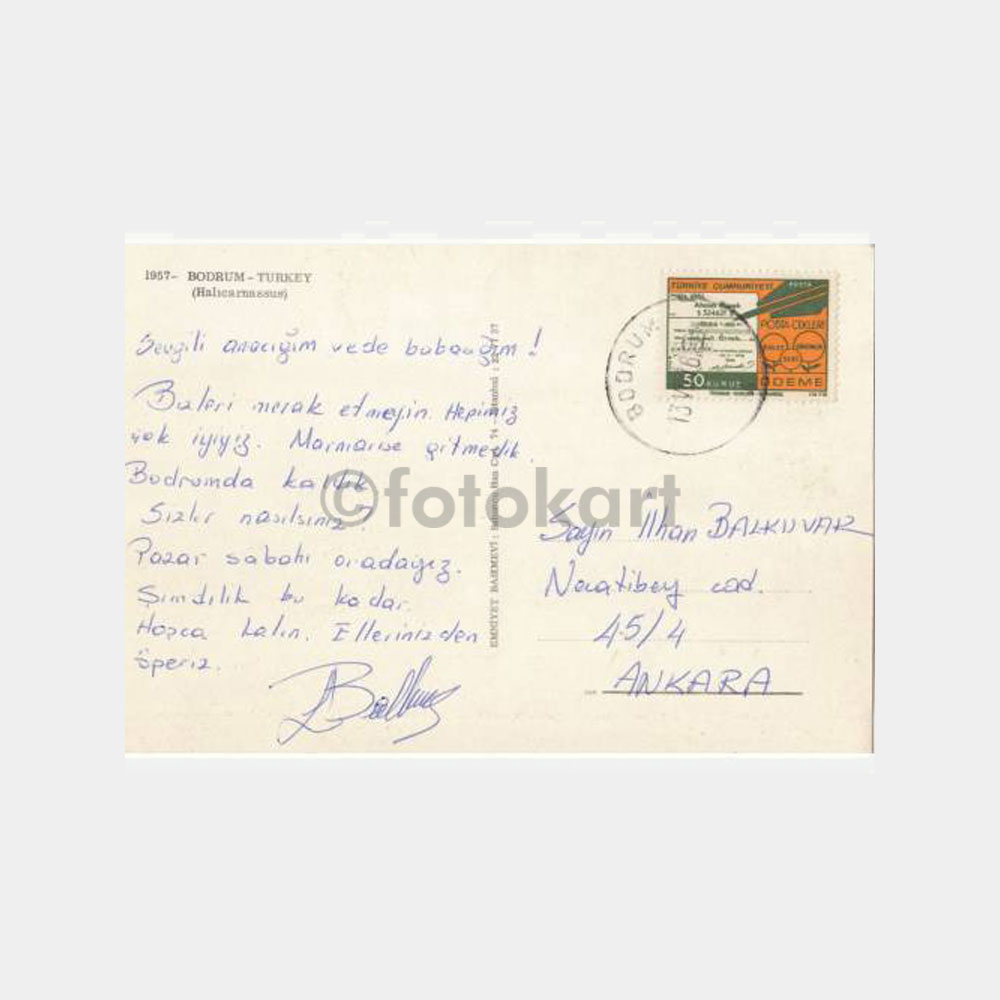 1957- BODRUM - TURKEY
(Halicarnassus)
Sevgili anacığım vede babacığım!
Bizleri merak etmeyin. Hepimiz
çok iyiyiz. Marmarise gitmedik.
Bodrumda kaldık
Sizler nasılsınız?
Pazar sabahı oradayız.
Şimdilik bu kadar.
Hoşca kalın. Ellerinizden
öperiz.
EMNİYET BASIMEVİ :
TÜRKİYE CUMHURİYETİ
POSTA
POSTA ÇEKLERİ
50 KURUŞ
ÖDEME
BODRUM
Sayın İlhan BALKUVAR
Necatibey cad.
45/4
ANKARA
©fotokart